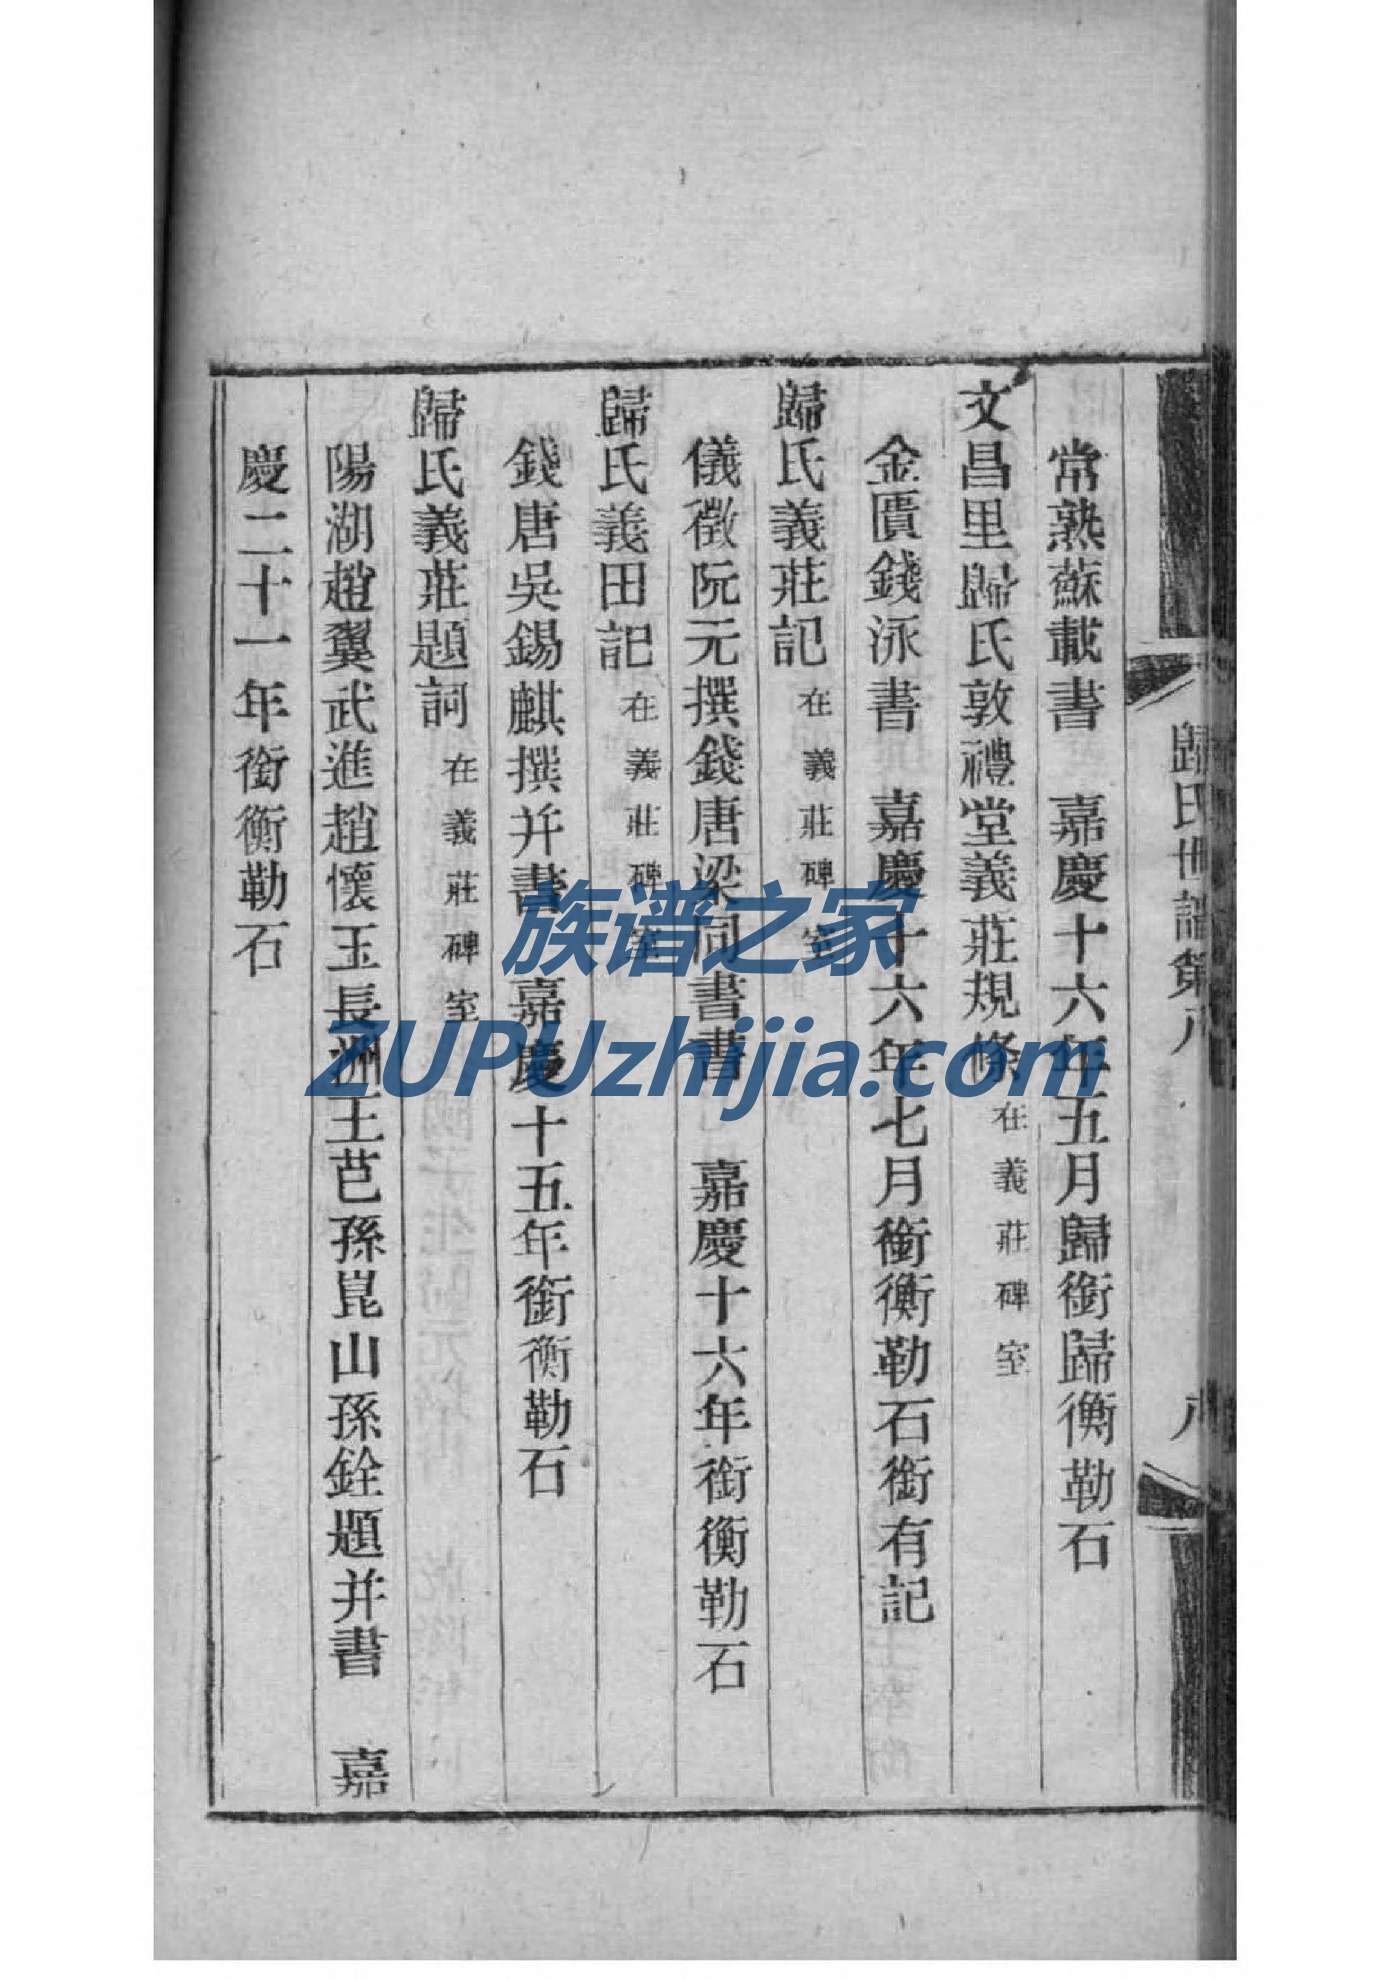 歸氏世譜第八
八
常熟蘇載書　嘉慶十六年五月歸銜歸衡勒石
文昌里歸氏敦禮堂義莊規條在義莊碑室
金匱錢泳書　嘉慶十六年七月銜衡勒石銜有記
歸氏義莊記在義莊碑室
儀徵阮元撰錢唐梁同書書　嘉慶十六年銜衡勒石
歸氏義田記在義莊碑室
錢唐吳錫麒撰并書　嘉慶十五年銜衡勒石
歸氏義莊題詞在義莊碑室
陽湖趙翼武進趙懷玉長洲王芑孫崑山孫銓題并書　嘉
慶二十一年銜衡勒石
族谱之家
ZUPUzhijia.com